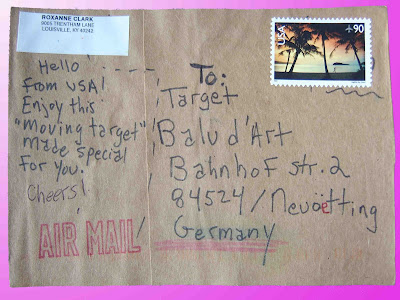 ROXANNE CLARK
9005 TRENTHAM LANE
LOUISVILLE, KY 40242
Hello
from USA!
Enjoy this
"moving target"
made special
for you.
Cheers!
AIR MAIL
USA
+90
To:
Target
Balud'Art
Bahnhof str. 2
84524/Neuoetting
Germany